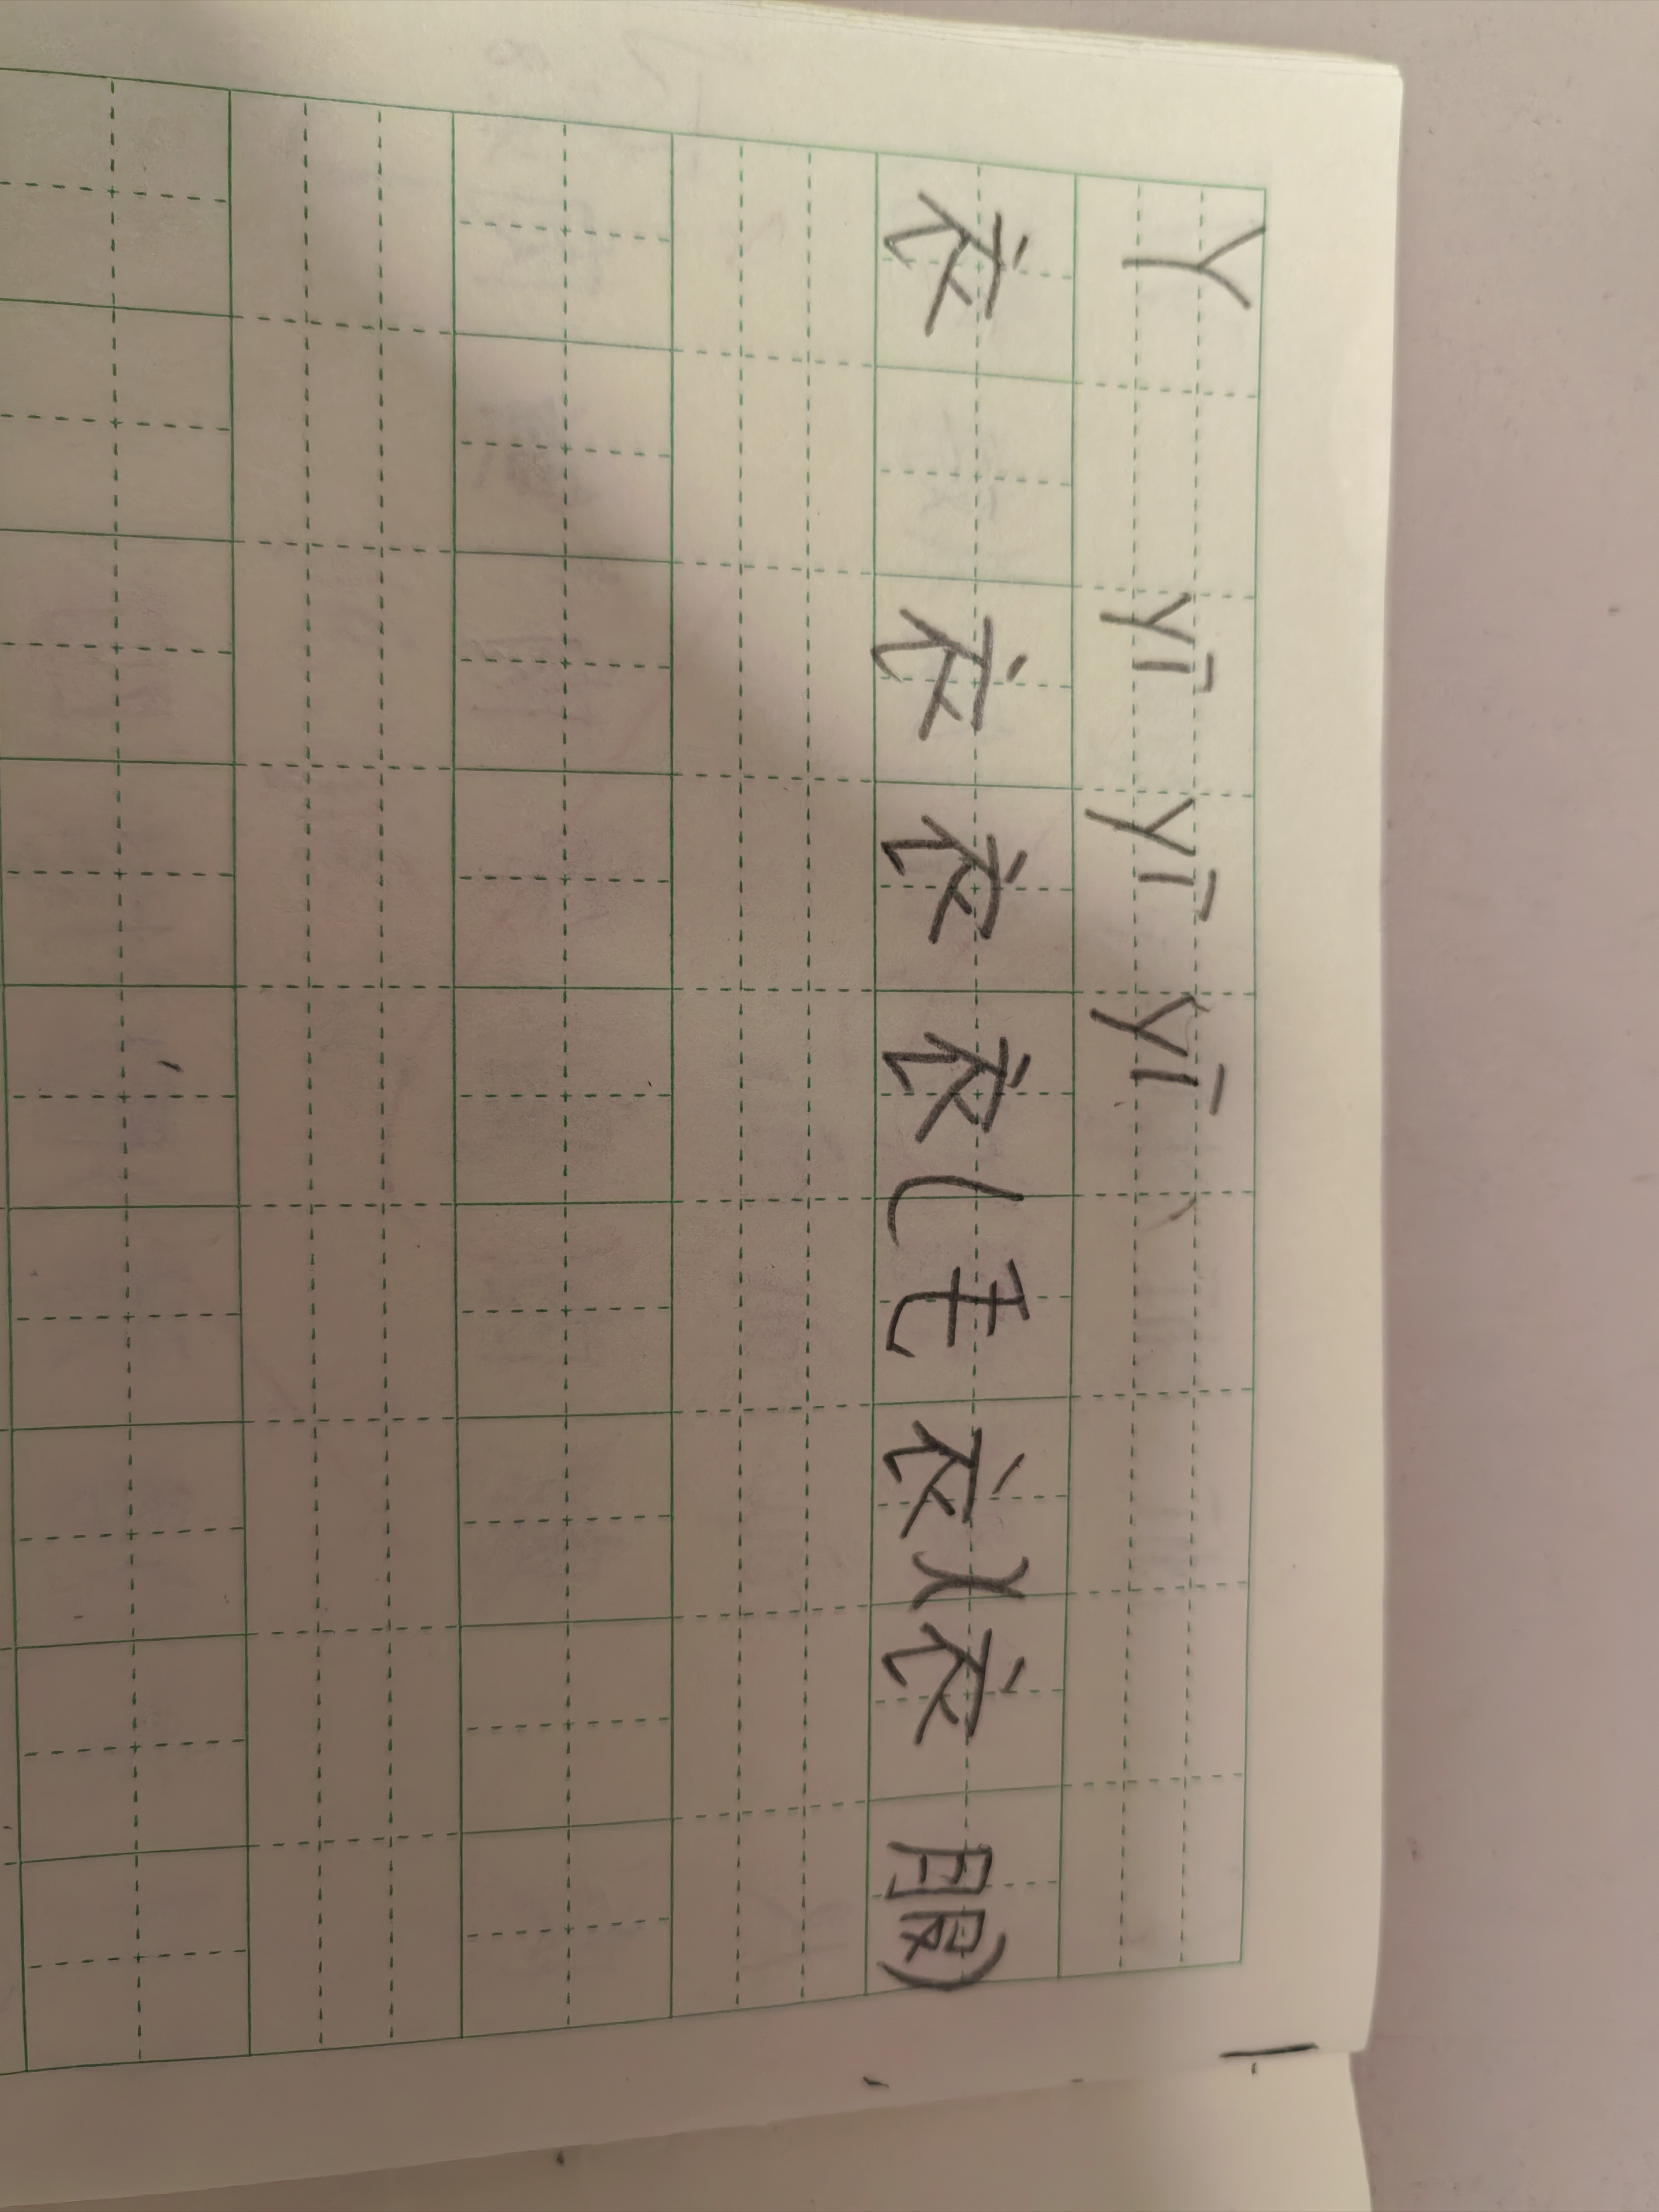 Y yī yī yī
衣 衣 衣 衣(毛衣)(衣服)